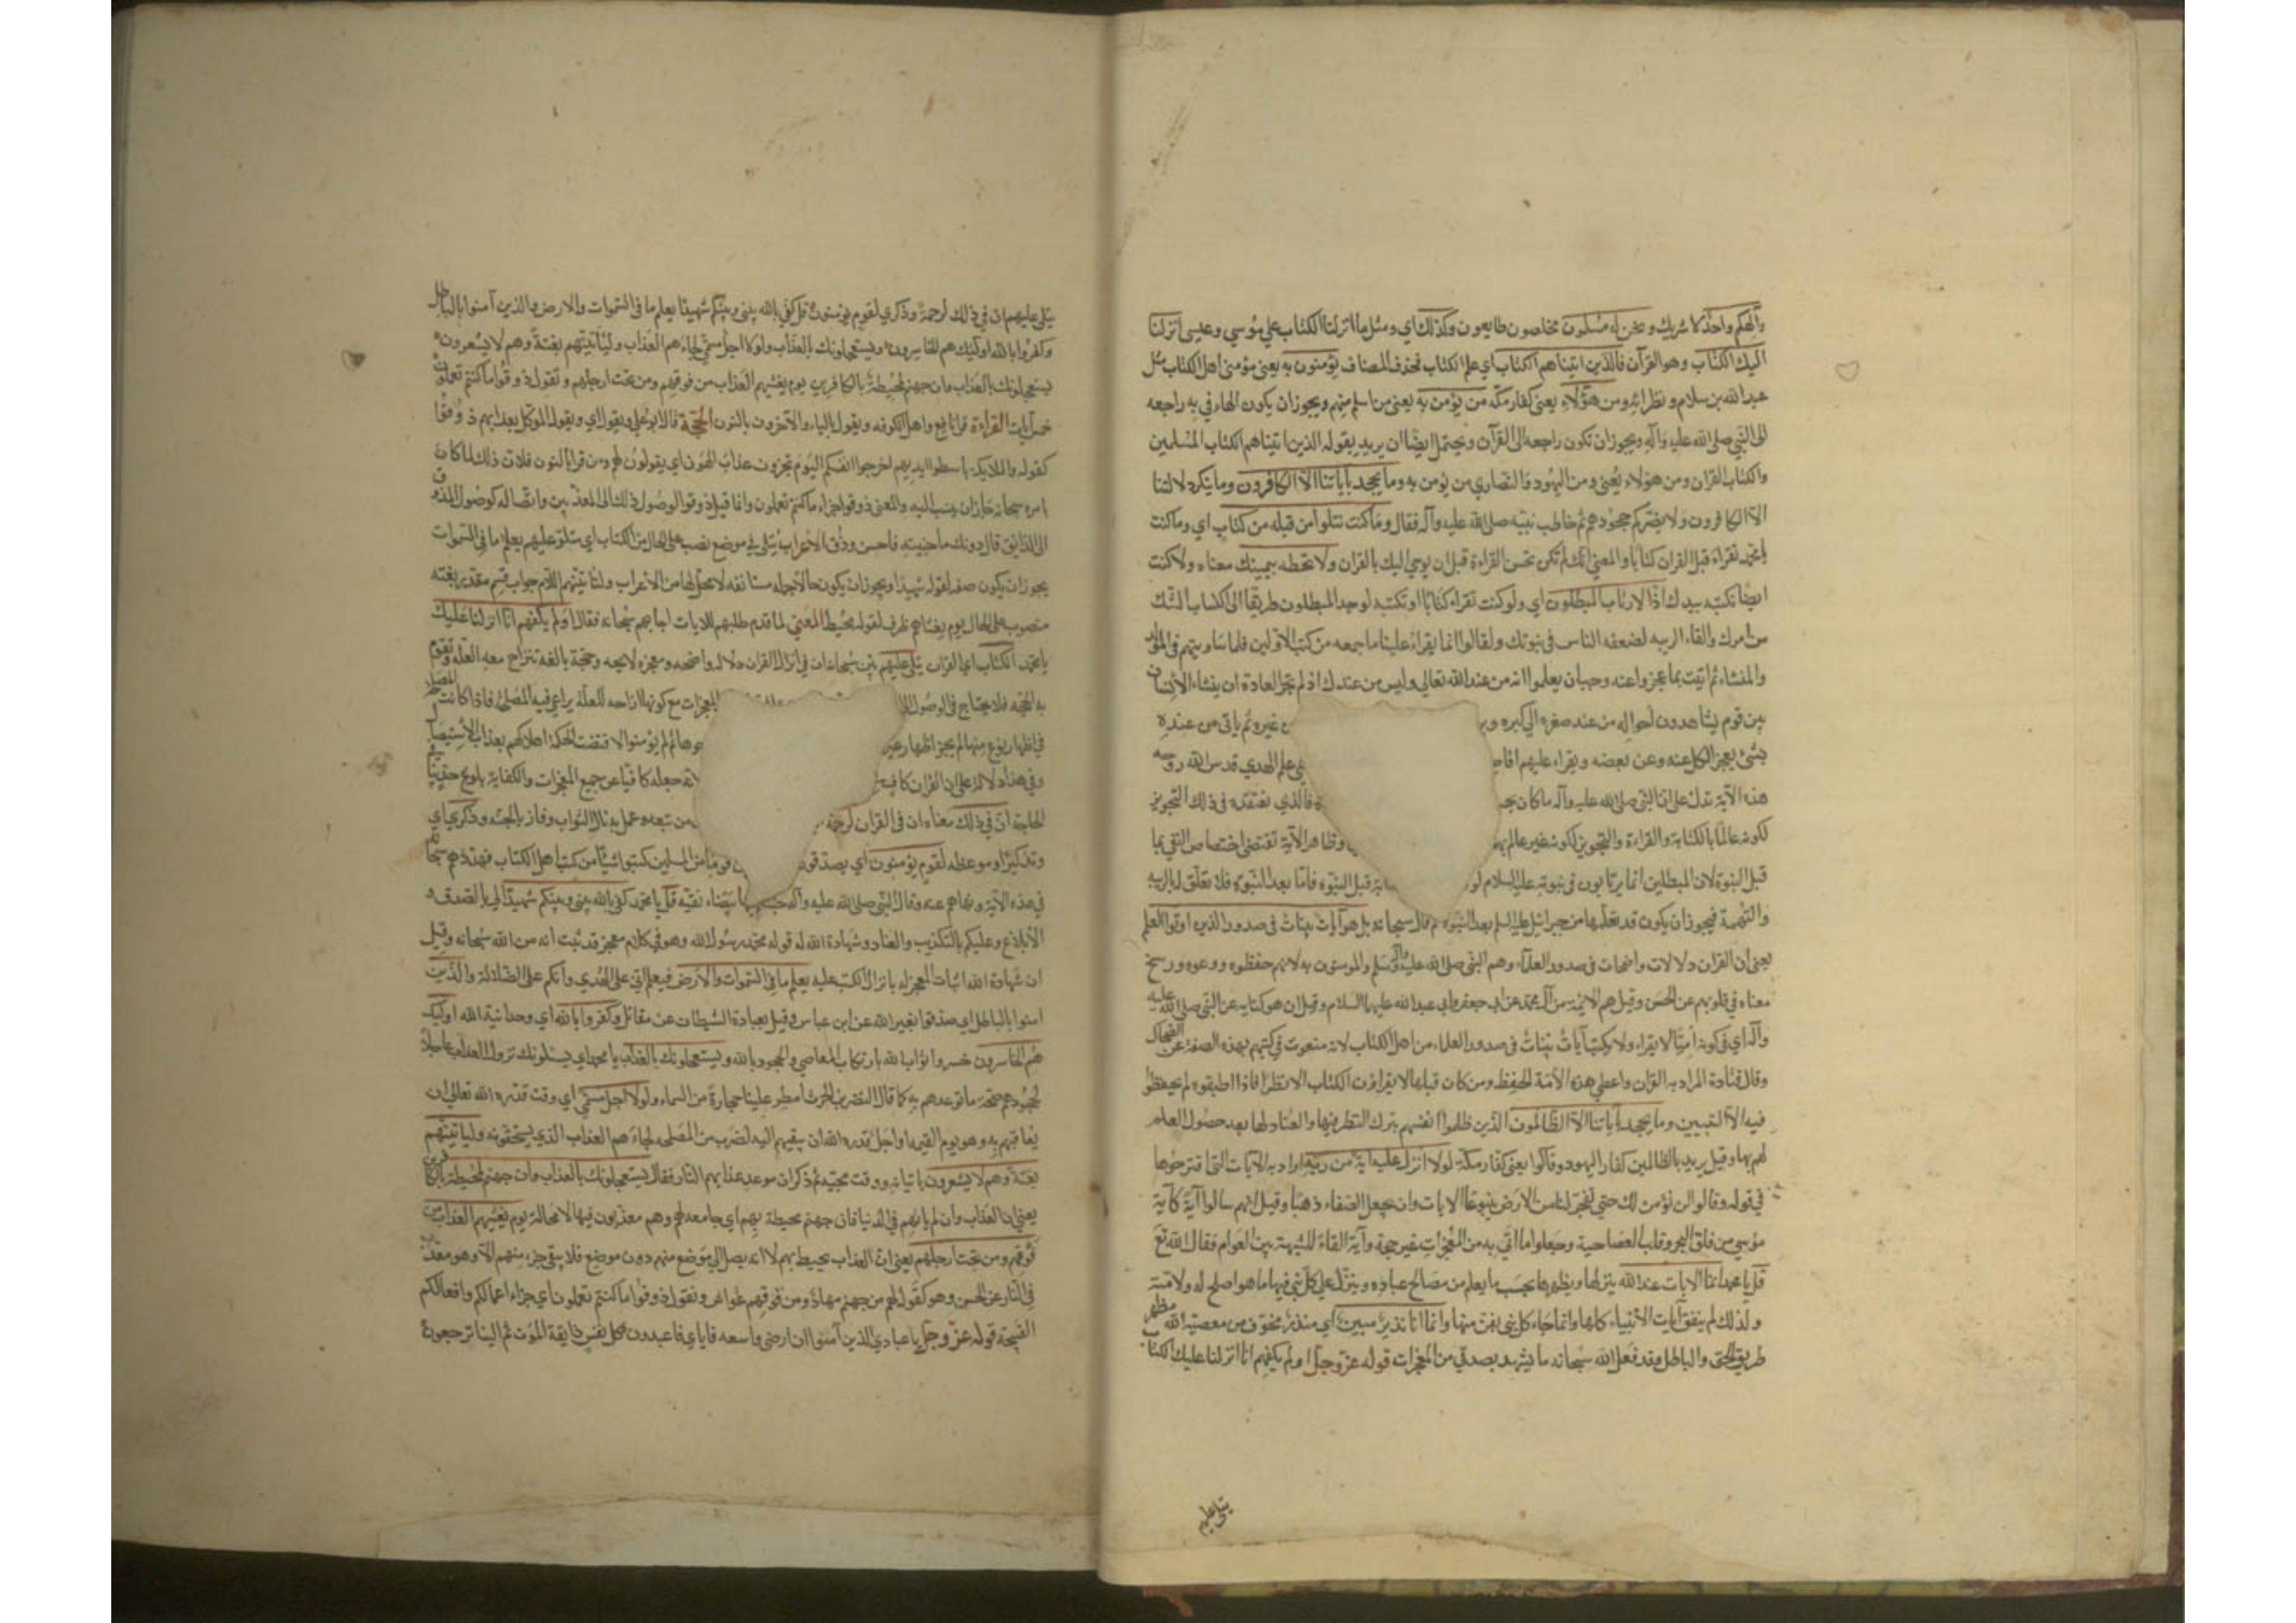 والهكم واحد لا شريك له ونحن له مسلمون مخلصون طايعون وكذلك اي ومثل ما انزلنا الكتاب علي موسي وعيسى انزلنا
اليك الكتاب وهو القرآن فالذين اتيناهم الكتاب اي علم الكتاب فحذف المضاف يؤمنون به يعنى مؤمنى اهل الكتاب مثل
عبد الله بن سلام و نظرائه ومن هؤلاء يعنى كفار مكّه من يؤمن به يعنى من اسلم منهم ويجوز ان يكون الهاء في به راجعه
الى النبي صلى الله عليه وآله ويجوز ان تكون راجعه الى القرآن ويحتمل ايضًا ان يريد بقوله الذين اتيناهم الكتاب المسلمين
والكتاب القران ومن هؤلاء يعنى ومن اليهود والنصارى من يؤمن به وما يجحد بآياتنا الا الكافرون وما ينكر دلالتنا
الا الكافرون ولا يضركم جحودهم ثم خاطب نبيه صلى الله عليه وآله فقال وما كنت تتلوا من قبله من كتاب اي وما كنت
يا محمد تقراء قبل القران كتابًا والمعنى انك لم تكن تحسن القراءة قبل ان يوحي اليك بالقران ولا تخطه بيمينك معناه ولا كنت
ايضا تكتبه بيدك اذًا لارتاب المبطلون اي ولو كنت تقراء كتابًا او تكتبه لوجد المبطلون طريقًا الى اكتساب الشك
من امرك والقاء الريبه لضعفه الناس في نبوتك ولقالوا انما يقراء علينا ما جمعه من كتب الاولين فلما ساويتهم في المولد
والمنشاء ثم اتيت بما عجزوا عنه وجب ان يعلموا انه من عند الله تعالي وليس من عندك اذ لم تجر العادة ان ينشاء الانسان
بين قوم يشاهدون احواله من عند صغره الي كبره غيره ثم ياتى من عنده
بشئ يعجز الكل عنه وعن بعضه ويقراء عليهم علم الهدي قدس الله روحه
هذه الآية تدل على ان النبي صلى الله عليه وآله ما كان فالذي نعتقده في ذلك التجويز
لكونه عالمًا بالكتابة والقراءة والتجويز لكونه غير عالم وظاهر الآية تقتضي اختصاص النفي بما
قبل النبوة لان المبطلين انما يرتابون في نبوته عليه السلام قبل النبوه فاما بعد النبوه فلا تعلّق له بالريبه
والتهمة فيجوز ان يكون قد تعلمها من جبرائيل عليه السلم بعد النبوه ثم قال سبحانه بل هو آيات بينات في صدور الذين اوتوا العلم
يعنى ان القران دلالات واضحات في صدور العلماء وهم النبي صلى الله عليه وآله وسلم والمومنون به لانهم حفظوه ووعوه ورسخ
معناه في قلوبهم عن الحسن وقيل هم الائمة من آل محمد عن ابي جعفر وابي عبد الله عليهما السلام وقيل ان هو كنايه عن النبي صلى الله عليه
وآله اي في كونه اميًا لا يقراء ولا يكتب آيات بينات في صدور العلماء من اهل الكتاب لانه منعوت في كتبهم بهذه الصفة عن الضحاك
وقال قتادة المراد به القران واعطي هذه الامة الحفظ ومن كان قبلها لا يقراؤن الكتاب الا نظرًا فاذا اطبقوه لم يحفظوا
فيه الا النبيين وما يجحد بآياتنا الا الظالمون الذين ظلموا انفسهم بترك النظر فيها والعناد لها بعد حصول العلم
لهم بها وقيل يريد بالظالمين كفار اليهود وقالوا يعنى كفار مكة لولا انزل عليه آية من ربه اراد به الآيات التى اقترحوها
في قوله وقالوا لن نؤمن لك حتي تفجر لنا من الارض ينبوعًا الايات وان يجعل الصفاء ذهبًا وقيل انهم سالوا آية كآية
موسي من فلق البحر وقلب العصا حية وجعلوا ما اتي به من المعجزات غير حجة وآية القاءً للشبهة بين العوام فقال الله تع
قل يا محمد انما الايات عند الله ينزلها ويظهرها بحسب ما يعلم من مصالح عباده وينزل علي كل نبي فيها ما هو اصلح له ولامته
ولذلك لم يتفق آيات الأنبياء كلها وانما جاء كل نبي بفن منها وانما انا نذير مبين اي منذر مخوف من معصية الله مظهر
طريق الحق والباطل وقد فعل الله سبحانه ما يشهد بصدقي من المعجزات قوله عز وجل اولم يكفهم انا انزلنا عليك الكتا
يتلى عليهم
يتلى عليهم ان في ذلك لرحمة وذكري لقوم يؤمنون قل كفى بالله بينى وبينكم شهيدًا يعلم ما في السموات والارض والذين آمنوا بالباطل
وكفروا بالله اولئك هم الخاسرون ويستعجلونك بالعذاب ولولا اجل مسمى لجاءهم العذاب وليأتينهم بغتة وهم لا يشعرون
يستعجلونك بالعذاب وان جهنم لمحيطة بالكافرين يوم يغشيهم العذاب من فوقهم ومن تحت ارجلهم ونقول ذوقوا ما كنتم تعملون
خمس آيات القراءة قرأ نافع واهل الكوفه ويقول بالياء والآخرون بالنون الحجة قال ابو علي ويقول اي ويقول الموكل بعذابهم ذوقوا
كقوله والملايكة باسطوا ايديهم اخرجوا انفسكم اليوم تجزون عذاب الهون اي يقولون لهم ومن قرأ بالنون فلان ذلك لما كان
بامره سبحانه جاز ان ينسب اليه والمعنى ذوقوا جزاء ما كنتم تعملون وانما قيل ذوقوا لوصول ذلك الى المعذبين واتصاله كوصول المذوق
الى الذايق قال دونك ما جنيته فاحسن وذق الاعراب يتلى في موضع نصب على الحال من الكتاب اي متلوّ عليهم يعلم ما في السموات
يجوز ان يكون صفه لقوله شهيدا ويجوز ان يكون حالا جمله مستانفه لا محل لها من الاعراب ولتأتينهم اللام جواب قسم مقدر بغته
منصوب على الحال يوم يغشاهم ظرف لقوله محيط المعنى لما تقدم طلبهم للايات اجابهم سبحانه فقال اولم يكفهم انا انزلنا عليك
يا محمد الكتاب اي القرآن يتلى عليهم بيّن سبحانه ان في انزال القران دلاله واضحه ومعجزه لايحه وحجة بالغه تنزاح معه العله وتقوم
به الحجه فلا يحتاج في الوصول المعجزات مع كونها ازاحه للعلة يراعي فيه المصلحة فاذا كانت المصلحة
في اظهار نوع منها لم يجز اظهار غيرها لم يؤمنوا لاقتضت الحكمة اهلاكهم بعذاب الاستيصال
وفي هذا دلالة على ان القران كاف جعله كافيًا عن جميع المعجزات والكفاية بلوغ حد ينافي
الحاجة ان في ذلك معناه ان في القران لرحمة من تبعه وعمل به نال الثواب وفاز بالجنه وذكري اي
وتذكيرًا وموعظه لقوم يؤمنون اي يصدقون قومًا من المسلمين كتبوا شيئًا من كتب اهل الكتاب فهددهم سبحا
في هذه الآية ونهاهم عنه وقال النبي صلى الله عليه وآله بها بيضاء نقيّه قل يا محمد كفى بالله بينى وبينكم شهيدًا لي بالصدق و
الابلاغ وعليكم بالتكذيب والعناد وشهادة الله له قوله محمد رسول الله وهو في كلام معجز قد ثبت انه من الله سبحانه وقيل
ان شهادة الله اثبات المعجز له بانزال الكتب عليه يعلم ما في السموات والارض فيعلم انى على الهدي وانكم على الضلالة والذين
امنوا بالباطل اي صدقوا بغير الله عن ابن عباس وقيل بعبادة الشيطان عن مقاتل وكفروا بالله اي وحدانية الله اولئك
هم الخاسرون خسروا ثواب الله بارتكاب المعاصي والجحود بالله ويستعجلونك بالعذاب يا محمد اي يسئلونك نزول العذاب عاجلًا
لجحودهم صحة ما توعدهم به كما قال النضر بن الحرث امطر علينا حجارة من السماء ولولا اجل مسمي اي وقت قدره الله تعالى ان
يعاقبهم به وهو يوم القيمه او اجل قدره الله ان يبقيهم اليه لضرب من المصلحه لجاءهم العذاب الذي يستحقونه وليأتينهم
بغتة وهم لا يشعرون باتيانه ووقت مجيئه ثم ذكر ان موعد عذابهم النار فقال يستعجلونك بالعذاب وان جهنم لمحيطة بالكافرين
يعنى ان العذاب وان لم ياتهم في الدنيا فان جهنم محيطة بهم اي جامعه لهم وهم معذبون فيها لا محالة يوم يغشيهم العذاب من
فوقهم ومن تحت ارجلهم يعنى ان العذاب يحيط بهم لا انه يصل الى موضع منهم دون موضع فلا يبقى جزء منهم الا وهو معذب
في النار عن الحسن وهو كقوله لهم من جهنم مهاد ومن فوقهم غواش ونقول ذوقوا ما كنتم تعملون اي جزاء اعمالكم وافعالكم
القبيحة قوله عز وجل يا عبادي الذين آمنوا ان ارضي واسعه فاياي فاعبدون كل نفس ذايقة الموت ثم الينا ترجعون